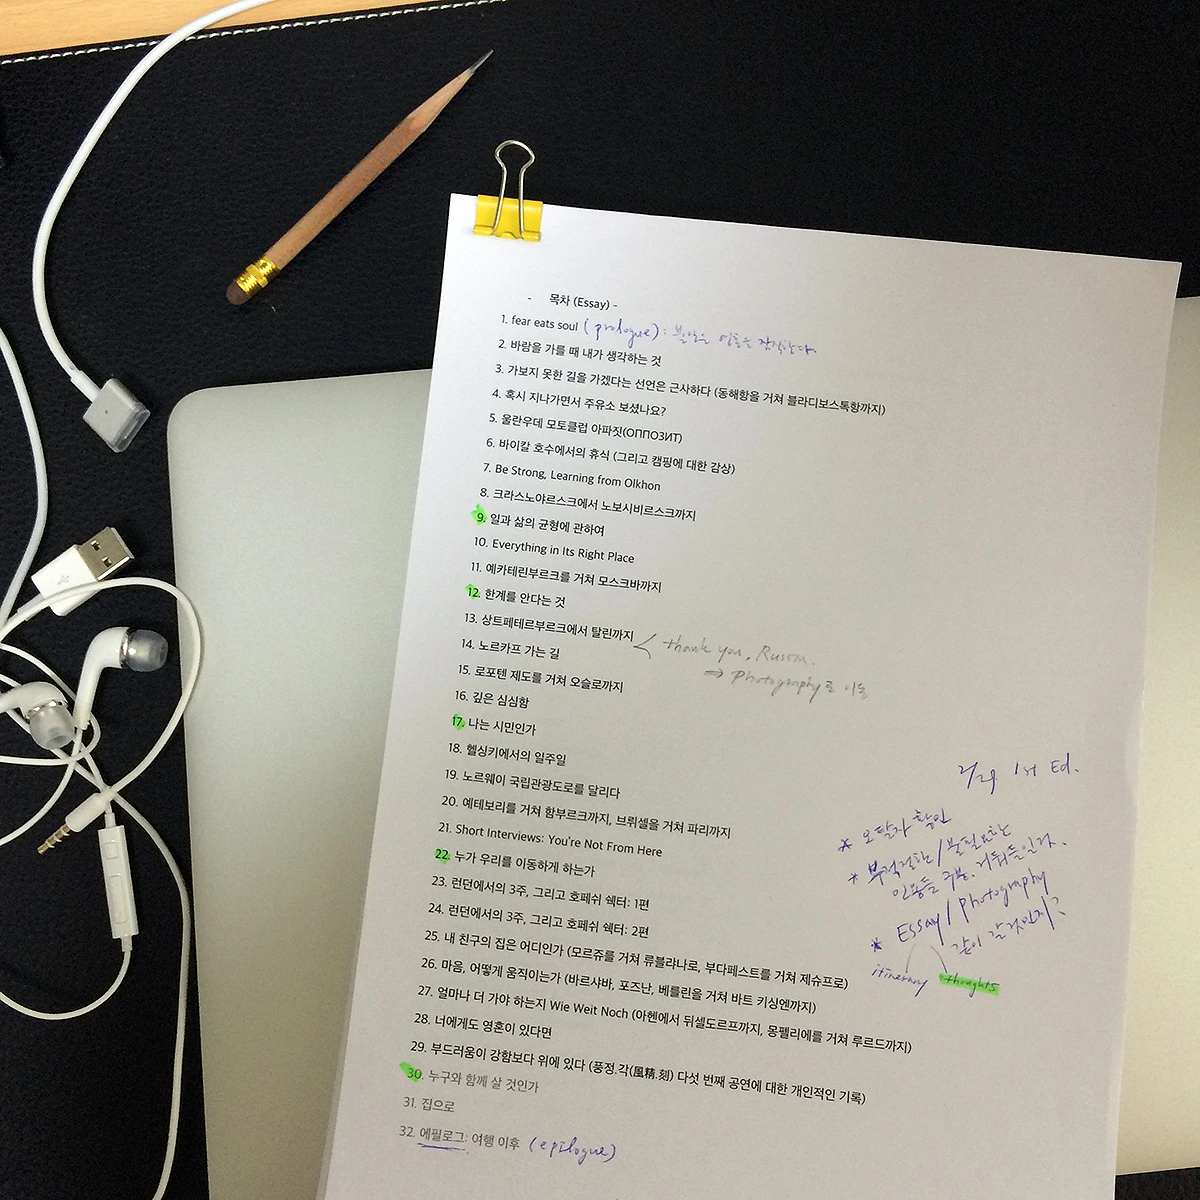 - 목차 (Essay) -
1. fear eats soul (prologue) : 불안은 영혼을 잠식한다
2. 바람을 가를 때 내가 생각하는 것
3. 가보지 못한 길을 가겠다는 선언은 근사하다 (동해항을 거쳐 블라디보스톡항까지)
4. 혹시 지나가면서 주유소 보셨나요?
5. 울란우데 모토클럽 아파짓(ОППОЗИТ)
6. 바이칼 호수에서의 휴식 (그리고 캠핑에 대한 감상)
7. Be Strong, Learning from Olkhon
8. 크라스노야르스크에서 노보시비르스크까지
9. 일과 삶의 균형에 관하여
10. Everything in Its Right Place
11. 예카테린부르크를 거쳐 모스크바까지
12. 한계를 안다는 것
13. 상트페테르부르크에서 탈린까지
14. 노르카프 가는 길
thank you, Russia.
→ photography로 이동
15. 로포텐 제도를 거쳐 오슬로까지
16. 깊은 심심함
17. 나는 시민인가
18. 헬싱키에서의 일주일
19. 노르웨이 국립관광도로를 달리다
20. 예테보리를 거쳐 함부르크까지, 브뤼셀을 거쳐 파리까지
21. Short Interviews: You're Not From Here
22. 누가 우리를 이동하게 하는가
23. 런던에서의 3주, 그리고 호페쉬 쉑터: 1편
24. 런던에서의 3주, 그리고 호페쉬 쉑터: 2편
25. 내 친구의 집은 어디인가 (모르쥬를 거쳐 류블랴나로, 부다페스트를 거쳐 제슈프로)
26. 마음, 어떻게 움직이는가 (바르샤바, 포즈난, 베를린을 거쳐 바트 키싱엔까지)
27. 얼마나 더 가야 하는지 Wie Weit Noch (아헨에서 뒤셀도르프까지, 몽펠리에를 거쳐 루르드까지)
28. 너에게도 영혼이 있다면
29. 부드러움이 강함보다 위에 있다 (풍정.각(風精.刻) 다섯 번째 공연에 대한 개인적인 기록)
30. 누구와 함께 살 것인가
31. 집으로
32. 에필로그: 여행 이후 (epilogue)
2/29 1st Ed.
* 오탈자 확인
* 부적절한/불필요한
인용들 구분. 거둬들일 것.
* Essay / photography
같이 갈 것인지?
itinerary thoughts